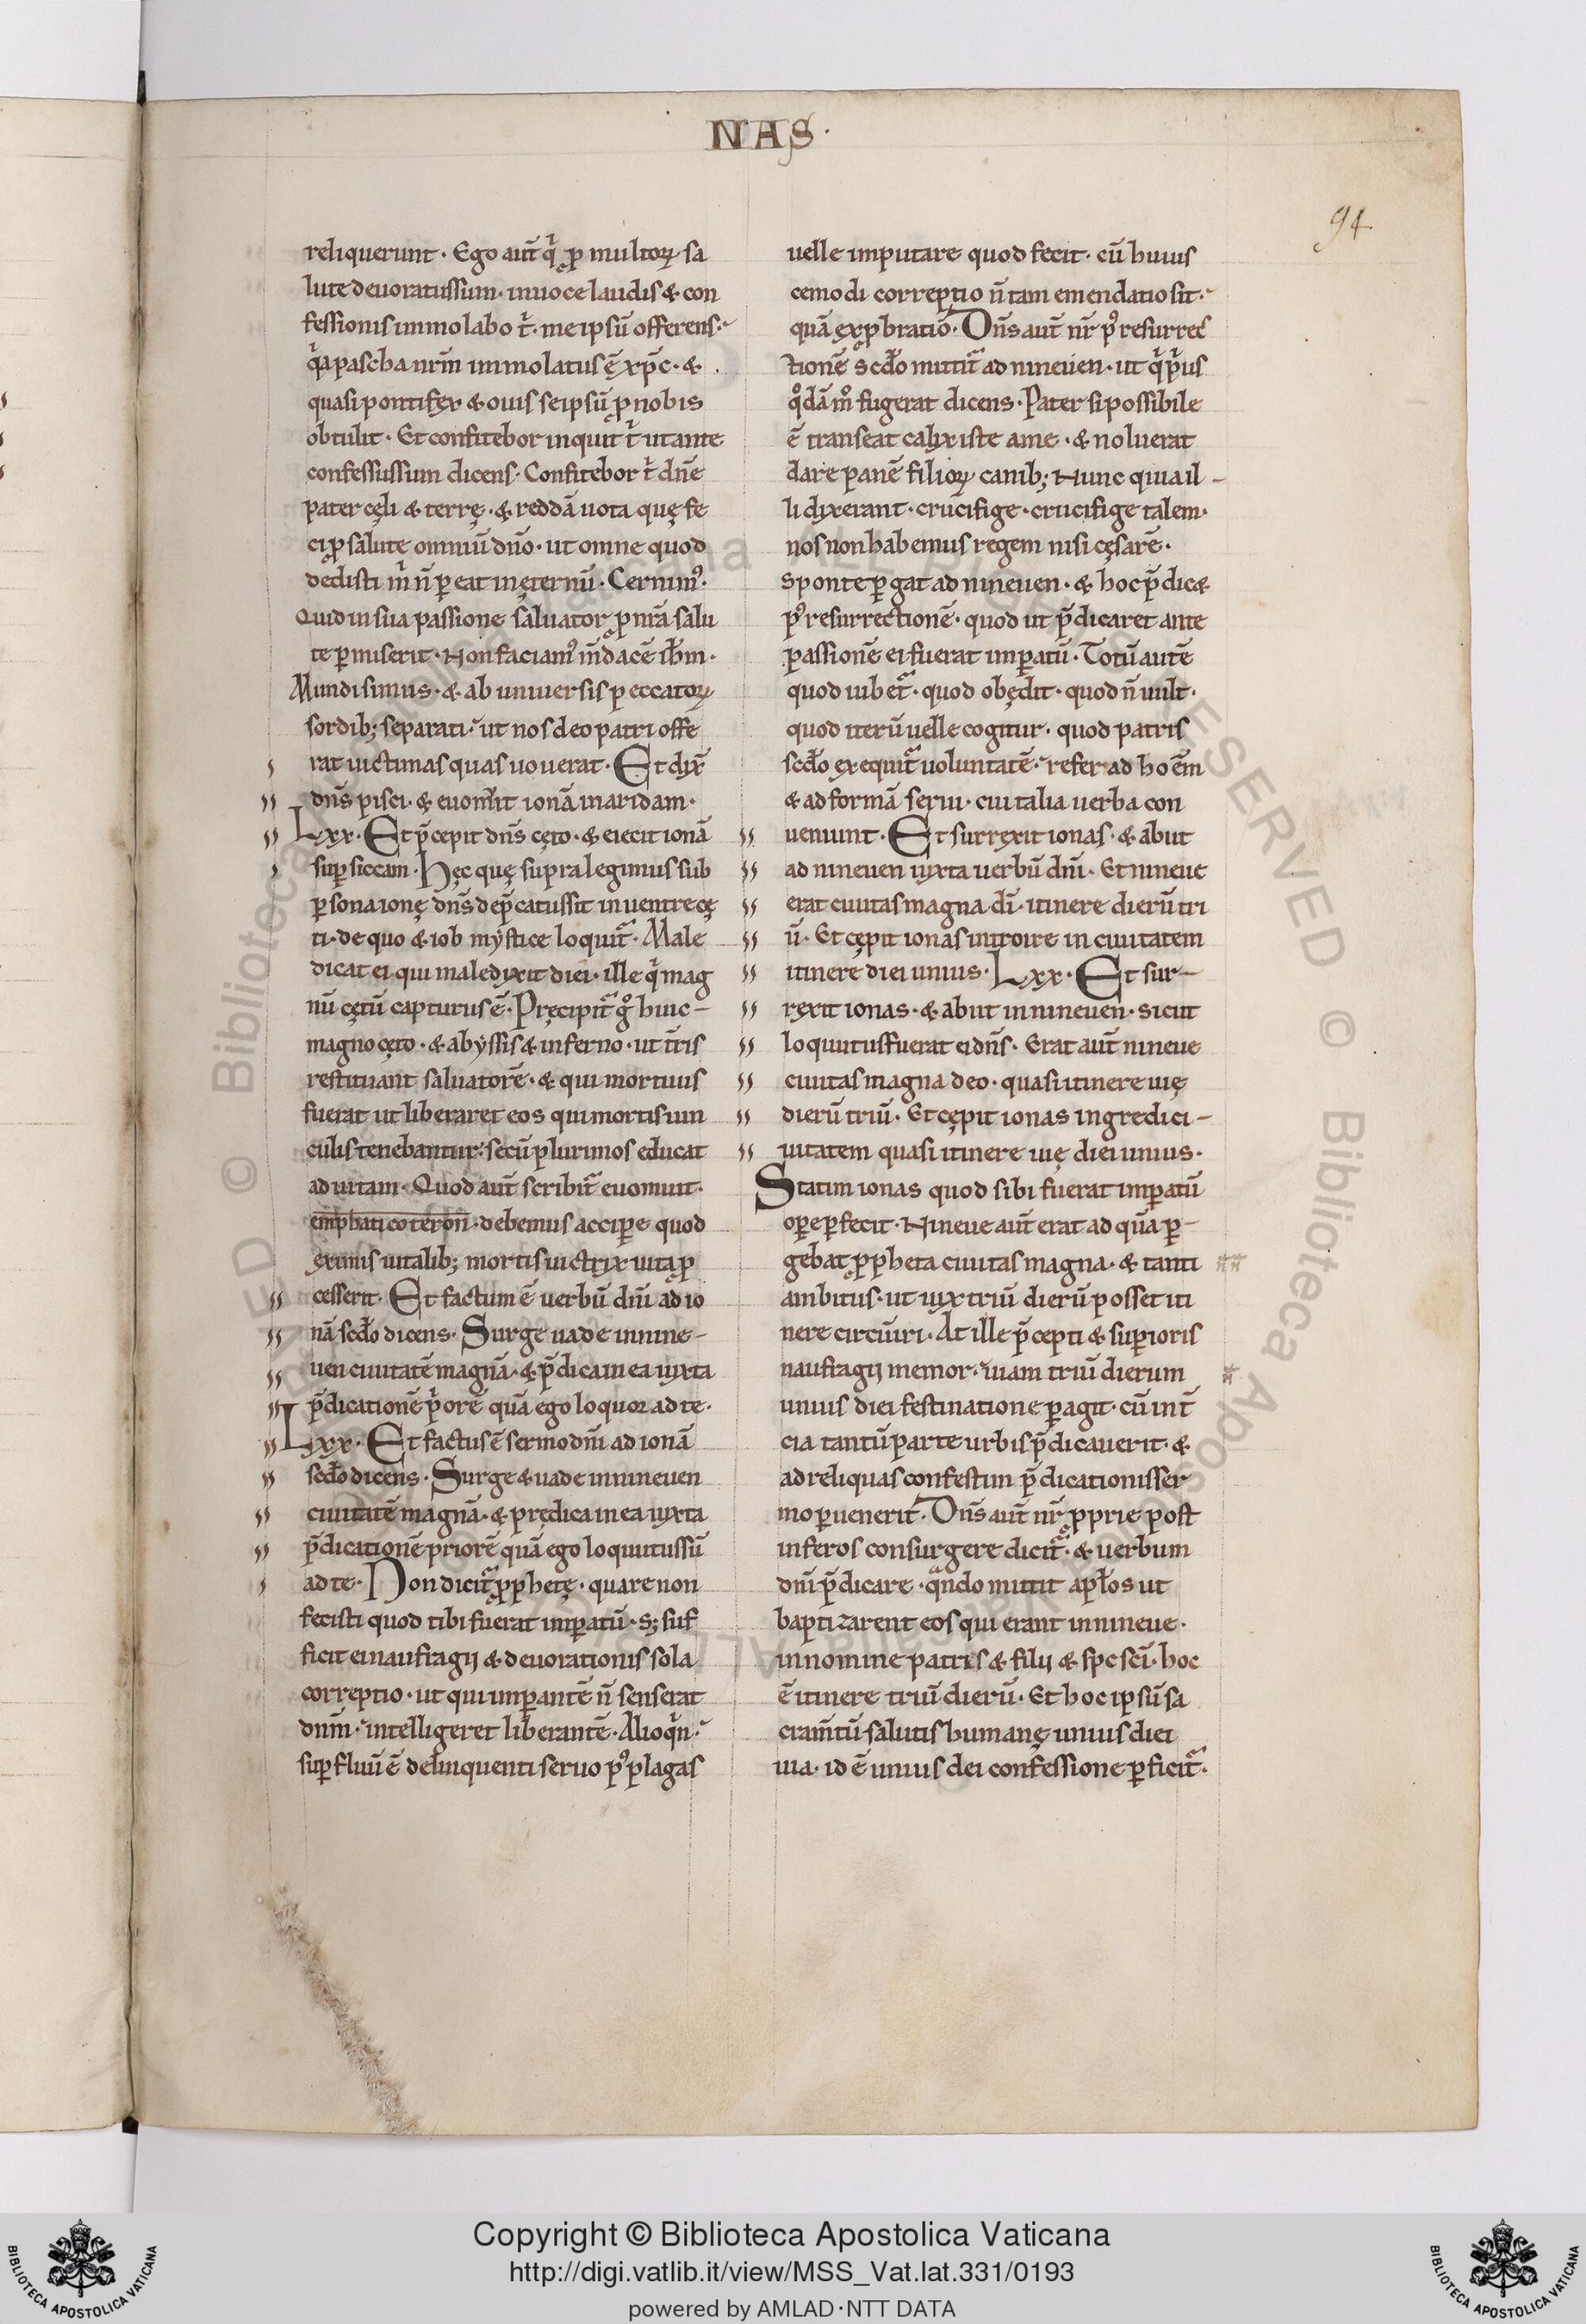 NAS·
94
reliquerunt· Ego aut̄ q̓ ꝓ multoꝝ sa
lute deuoratus sum· in uoce laudis & con
fessionis immolabo t̓· me ipsū offerens·
q̓a pascha nrm̄ immolatus ē xp̄c· &
quasi pontifex & ouis seipsū ꝓ nobis
obtulit· Et confitebor inquit t̓ ut ante
confessus sum dicens· Confitebor t̓ dn̄e
pater cęli & terrę· & reddā uota quę fe
ci ꝓ salute omniū dn̄o· ut omne quod
dedisti m̓ n̄ ꝑeat in ęternū· Cernimꝰ·
Quid in sua passione saluator ꝓ nr̄a salu
te ꝑmiserit· Non faciamꝰ m̄dacē ih̄m·
Mundi simus· & ab uniuersis peccatoꝝ
sordib; separati· ut nos deo patri offe
rat uictimas quas uouerat· Et dix̄
dn̄s pisci· & euomuit ionā in aridam·
Lxx· Et p̄cepit dn̄s cęto· & eiecit ionā
suꝑ siccam· Hęc quę supra legimus sub
ꝑsona ionę dn̄s dep̄catus sit in uentre cę
ti· de quo & iob mystice loquit᷑· Male
dicat ei qui maledixit diei· ille q̓ mag
nū cętū capturus ē· Pręcipit᷑ gͦ huic
magno cęto· & abyssis & inferno· ut t̄ris
restituant saluatorē· & qui mortuus
fuerat ut liberaret eos qui mortis uin
culis tenebantur· secū plurimos educat
ad uitam· Quod aut̄ scribit᷑ euomuit·
emphaticoteron· debemus acciꝑe quod
ex imis uitalib; mortis uictrix uita ꝓ
cesserit· Et factum ē uerbū dn̄i ad io
nā scd̄o dicens· Surge uade in nine-
uen ciuitatē magnā· & p̄dica in ea iuxta
p̄dicationē p̓orē quā ego loquor ad te·
Lxx· Et factus ē sermo dn̄i ad ionā
scd̄o dicens· Surge & uade in nineuen
ciuitatē magnā· & prędica in ea iuxta
p̄dicationē priorē quā ego loquutus sū
ad te· Non dicit᷑ ꝓphetę· quare non
fecisti quod tibi fuerat imꝑatū· s; suf
ficit ei naufragij & deuorationis sola
correptio· ut qui imꝑantē n̄ senserat
dnm̄· intelligeret liberantē· Alioq̓n·
suꝑfluū ē delinquenti seruo pꝰ plagas
uelle imputare quod fecit· cū huius
cemodi correptio n̄ tam emendatio sit·
quā exꝓbratio· Dn̄s aut̄ nr̄ pꝰ resurrec
tionē scd̄o mittit᷑ ad nineuen· ut q̓ p̓us
qͦdā mͦ fugerat dicens· Pater si possibile
ē transeat calix iste a me· & noluerat
dare panē filioꝝ canib; Nunc quia il-
li dixerant· crucifige· crucifige talem·
nos non habemus regem nisi cęsarē·
sponte ꝑgat ad nineuen· & hoc p̄dic&
pꝰ resurrectionē· quod ut p̄dicaret ante
passionē ei fuerat imꝑatū· Totū autē
quod iubet᷑· quod obędit· quod n̄ uult·
quod iterū uelle cogitur· quod patris
scd̄o exequit᷑ uoluntatē· refer ad hoēm
& ad formā serui· cui talia uerba con
ueniunt· Et surrexit ionas· & abiit
ad nineuen iuxta uerbū dn̄i· Et nineue
erat ciuitas magna dī· itinere dierū tri
ū· Et cępit ionas introire in ciuitatem
itinere diei unius· Lxx· Et sur-
rexit ionas· & abiit in nineuen· sicut
loquutus fuerat ei dn̄s· Erat aut̄ nineue
ciuitas magna deo· quasi itinere uię
dierū triū· Et cępit ionas ingredi ci-
uitatem quasi itinere uię diei unius·
Statim ionas quod sibi fuerat imꝑatū
oꝑe ꝑfecit· Nineue aut̄ erat ad quā ꝑ-
gebat ꝓpheta ciuitas magna· & tanti
ambitus· ut uix triū dierū posset iti
nere circūiri· At ille p̄cepti & suꝑioris
naufragij memor· uiam triū dierum
unius diei festinatione ꝑagit· cū in t̄
cia tantū parte urbis p̄dicauerit· &
ad reliquas confestim p̄dicationis ser
mo ꝑuenerit· Dn̄s aut̄ nr̄ ꝓprie post
inferos consurgere dicit᷑· & uerbum
dn̄i p̄dicare· qn̄do mittit apl̄os ut
baptizarent eos qui erant in nineue·
in nomine patris & filij & spc sc̄i· hoc
ē itinere triū dierū· Et hoc ipsū sa
cram̄tū salutis humanę unius diei
uia· id ē unius dei confessione ꝑficit᷑·
Copyright © Biblioteca Apostolica Vaticana
http://digi.vatlib.it/view/MSS_Vat.lat.331/0193
powered by AMLAD·NTT DATA
BIBLIOTECA APOSTOLICA VATICANA
BIBLIOTECA APOSTOLICA VATICANA